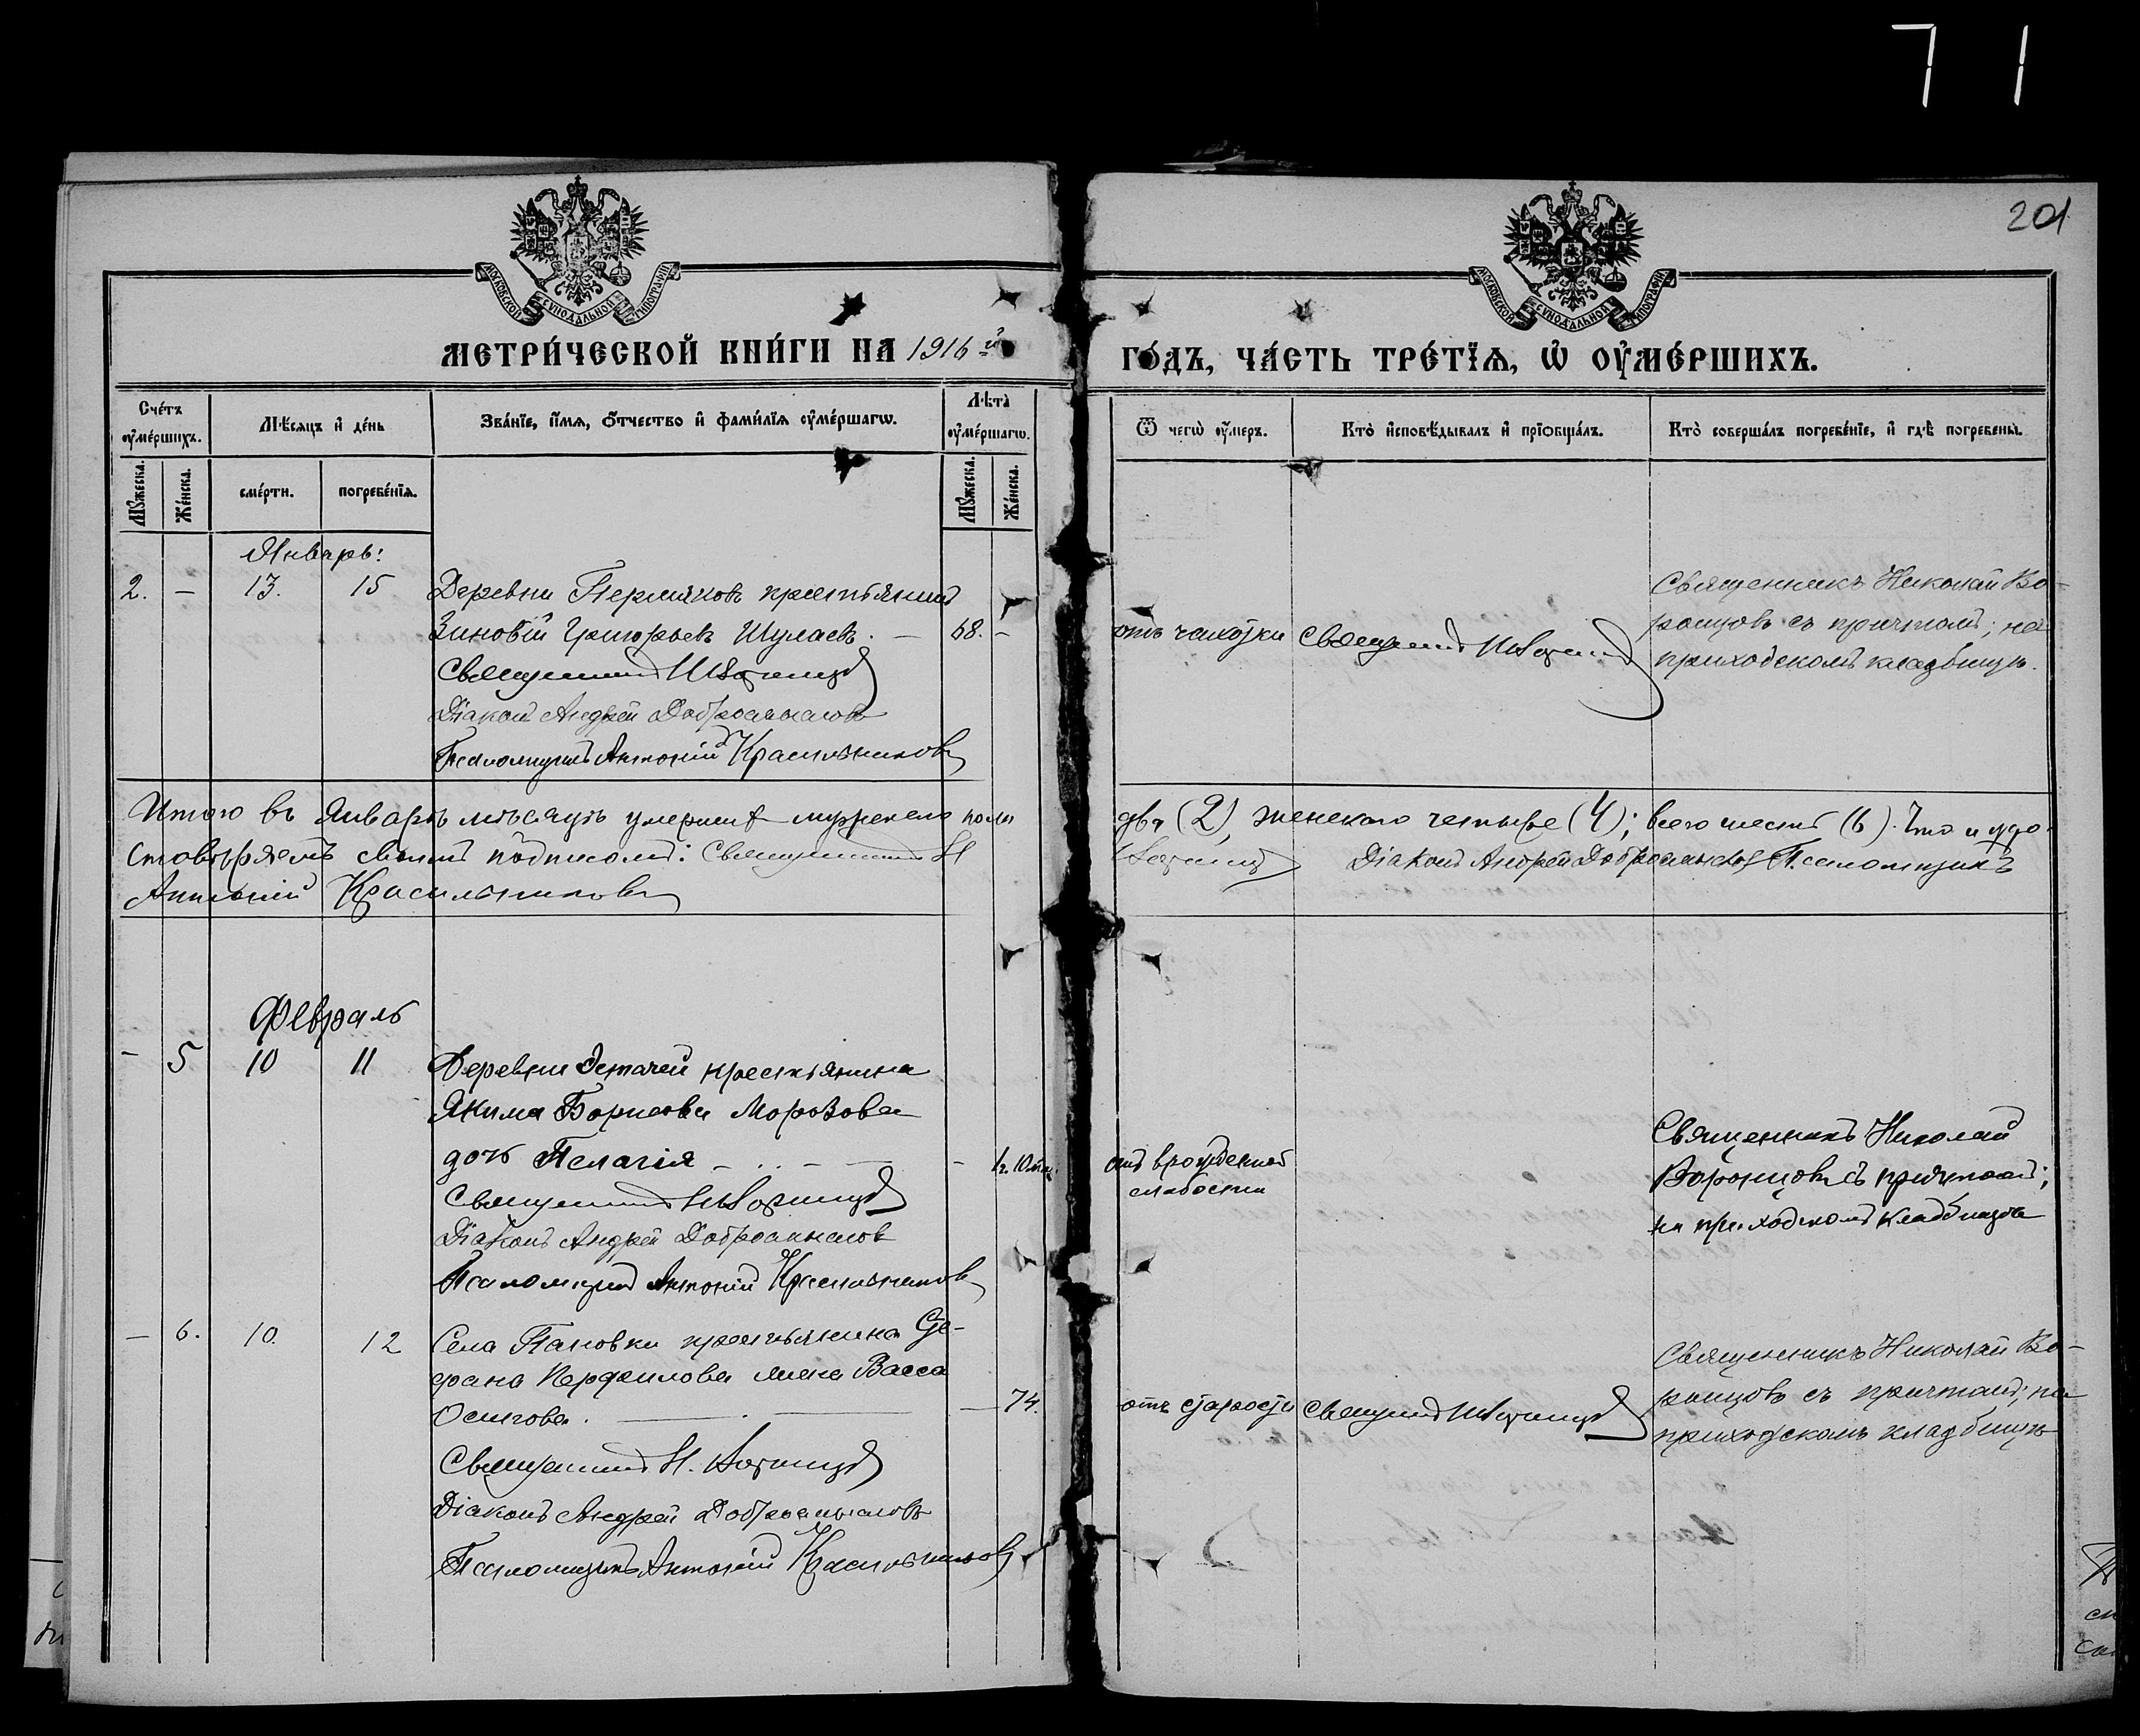 7 1
201
МОСКОВСКОЙ СѴНОДАЛЬНОЙ ТИПОГРАФІИ
МОСКОВСКОЙ СѴНОДАЛЬНОЙ ТИПОГРАФІИ
МЕТРИ́ЧЕСКОЙ КНИ́ГИ НА 1916 й
ГО́ДЪ, ЧА́СТЬ ТРЕ́ТЇѦ, Ѡ҆ ОУ҆МЕ́РШИХЪ.
Сче́тъ оу҆ме́ршихъ.
Мѣ́сяцъ и҆ де́нь
Зва́нїе, и҆́мѧ, ѻ҆́тчество и҆ фами́лїѧ оу҆ме́ршагѡ.
Лѣта̀ оу҆ме́ршагѡ.
Ѿ чегѡ̀ оу҆́меръ.
Кто̀ и҆сповѣ́дывалъ и҆ прїѡбща́лъ.
Кто̀ соверша́лъ погребе́нїе, и҆ гдѣ̀ погребены̀.
Мꙋ́жеска.
Же́нска.
сме́рти.
погребе́нїѧ.
Мꙋ́жеска.
Же́нска.
Январь:
2. – 13. 15 Деревни Пермяковъ крестьянинъ
Зиновій Григорьевъ Шулаевъ. – 68. –
Священникъ Н Воронцовъ
Діаконъ Андрей Добросмысловъ
Псаломщикъ Антоній Красильниковъ
отъ чахотки Священникъ Н Воронцовъ
Священникъ Николай Во-
ронцовъ съ причтомъ; на
приходскомъ кладбищѣ.
Итого въ Январѣ мѣсяцѣ умершихъ мужескаго пола
два (2), женскаго четыре (4); всего шесть (6). Что и удо-
стовѣряемъ своимъ подписомъ: Священникъ Н
Воронцовъ Діаконъ Андрей Добросмысловъ Псаломщикъ
Антоній Красильниковъ
Февраль
– 5 10 11 Деревни Эстачей крестьянина
Якима Борисова Морозова
дочь Пелагія – – 1 г. 10 мѣс.
Священникъ Н Воронцовъ
Діаконъ Андрей Добросмысловъ
Псаломщикъ Антоній Красильниковъ
отъ врожденной
слабости
Священникъ Николай
Воронцовъ съ причтомъ;
на приходскомъ кладбищѣ
– 6. 10. 12 Села Пановки крестьянина Сте-
фана Перфилова жена Васса
Осипова. – 74.
Священникъ Н. Воронцовъ
Діаконъ Андрей Добросмысловъ
Псаломщикъ Антоній Красильниковъ
отъ старости Священникъ Н Воронцовъ
Священникъ Николай Во-
ронцовъ съ причтомъ; на
приходскомъ кладбищѣ